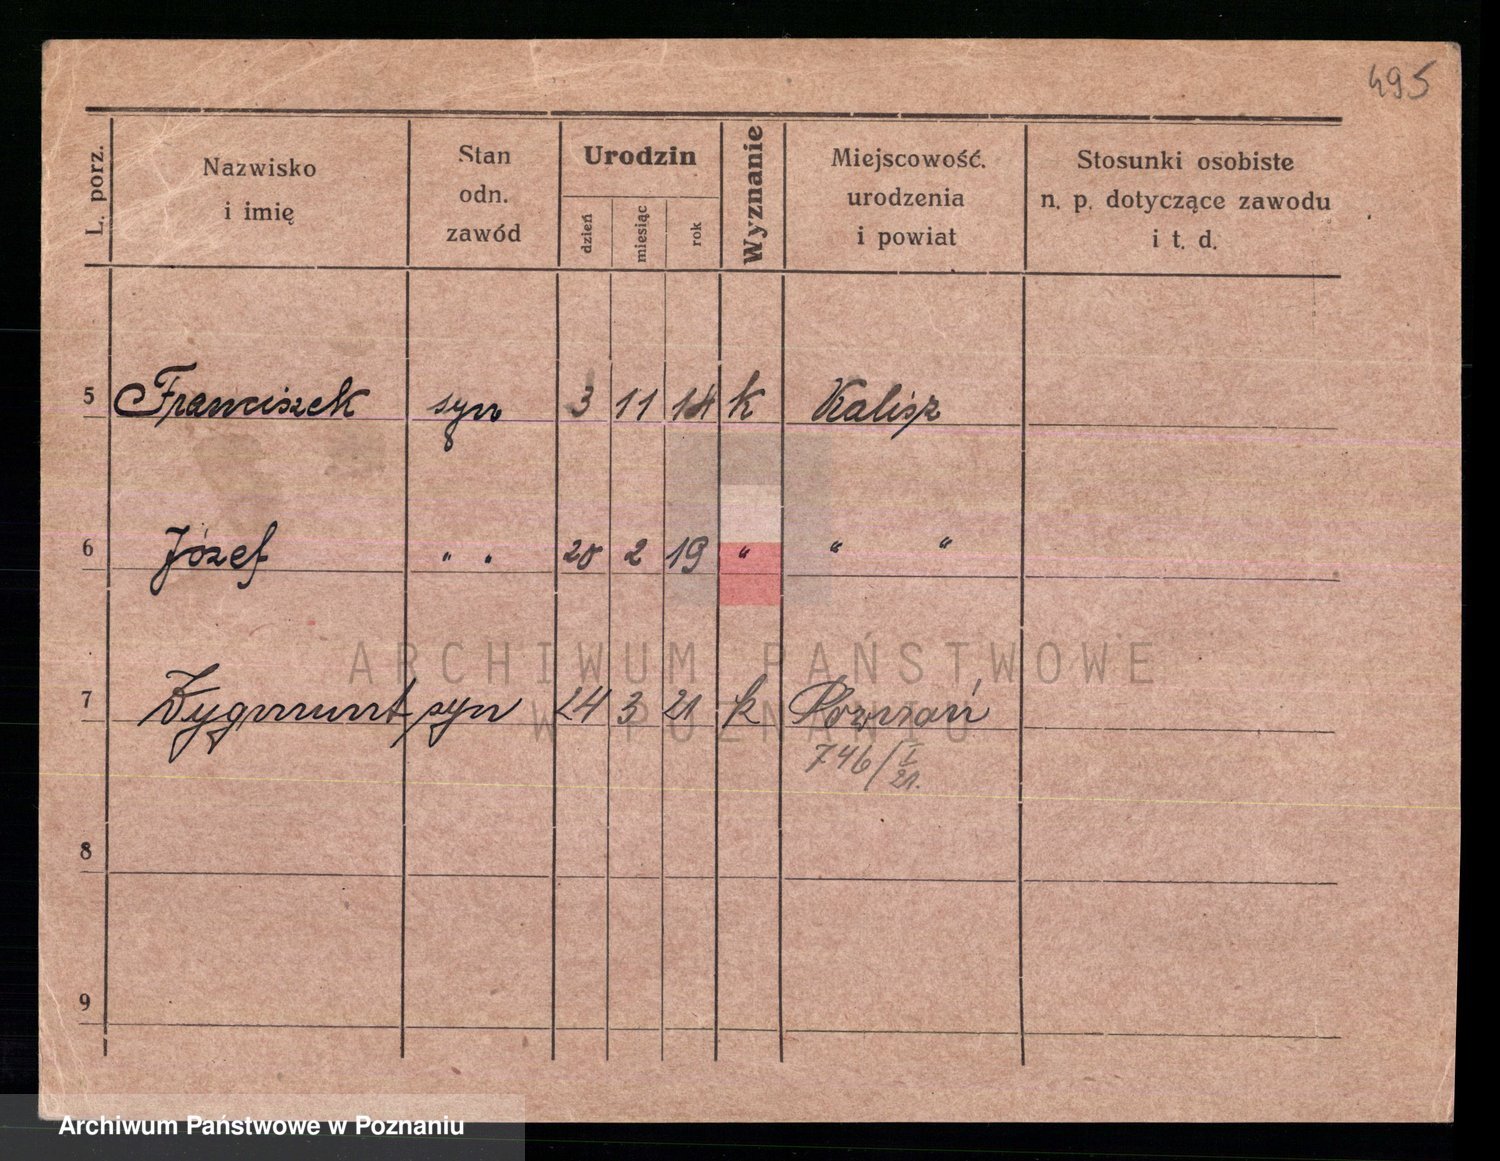 495
L. porz. Nazwisko i imię Stan odn. zawód Urodzin dzień miesiąc rok Wyznanie Miejscowość. urodzenia i powiat Stosunki osobiste n. p. dotyczące zawodu i t. d.
5 Franciszek syn 3 11 14 k Kalisz
6 Józef " " 20 2 19 " " "
ARCHIWUM PAŃSTWOWE
7 Zygmunt syn 24 3 21 k Poznań
W POZNANIU
746/I 21.
8
9
Archiwum Państwowe w Poznaniu